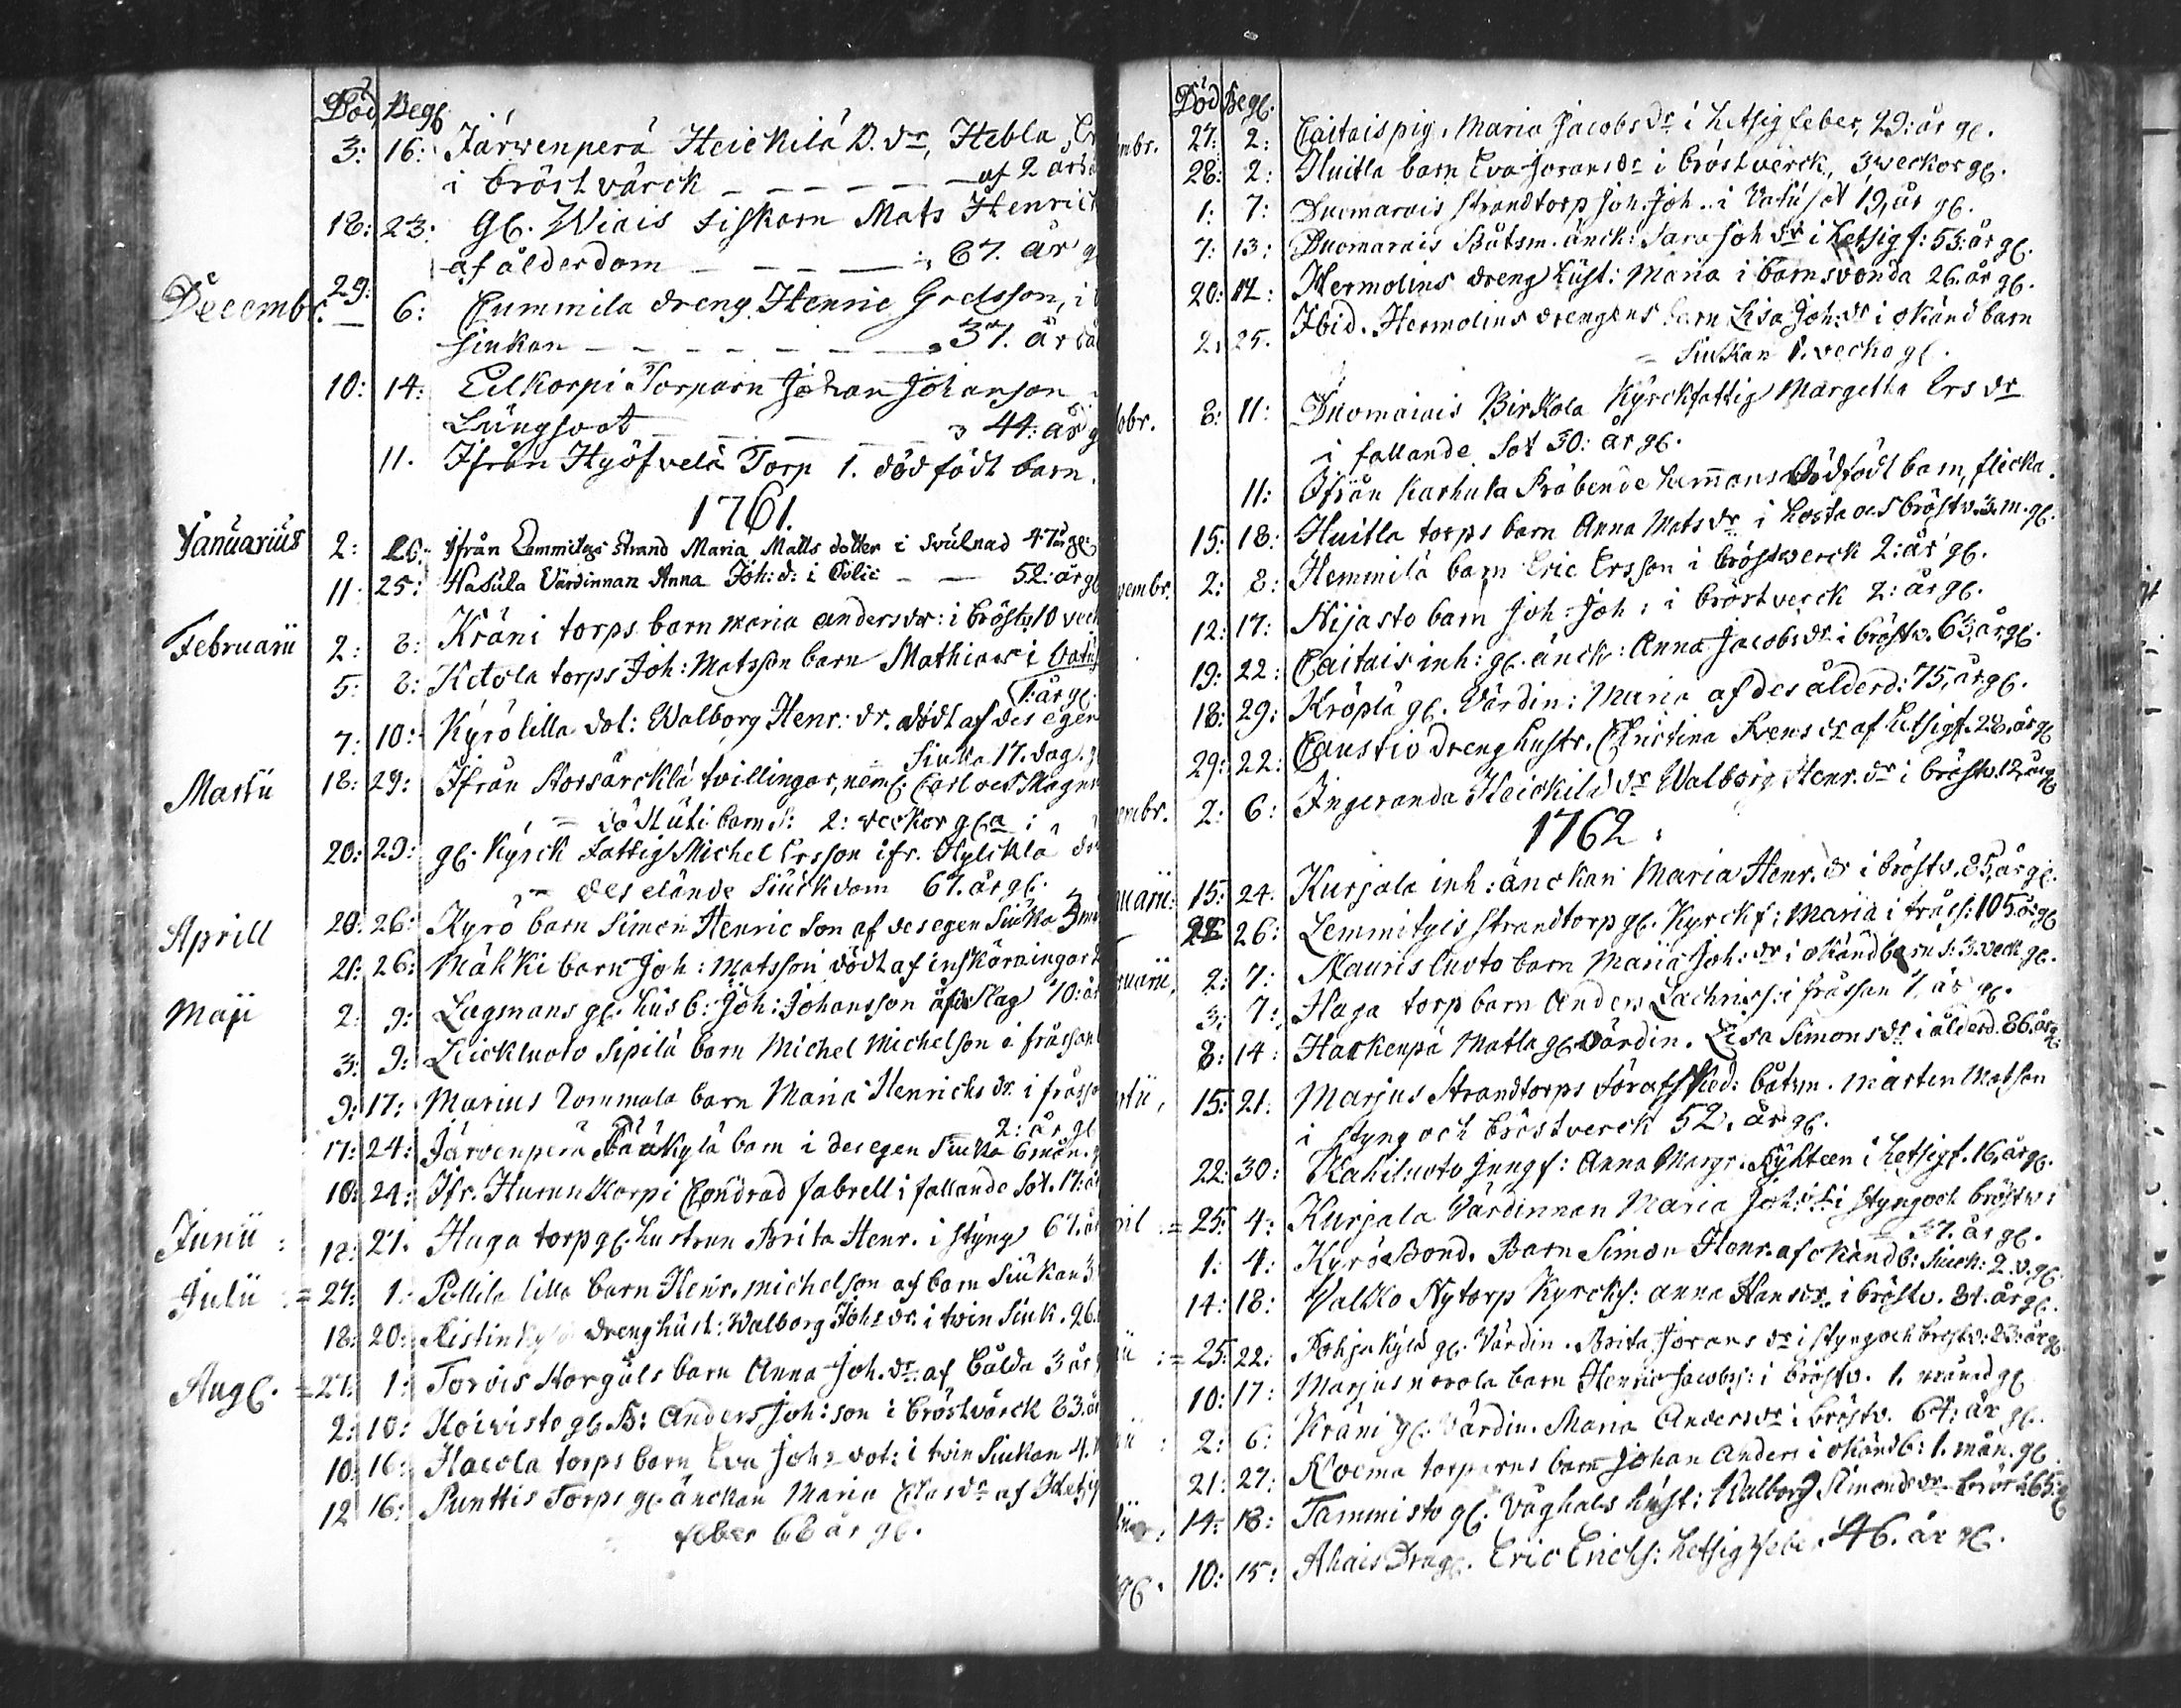 Död Begf.
3: 16: Järwenperä Heickilä D. dr, Hebla
i bröstvärck — — — — — — af 2 år
18: 23: Gl. Wiais Mats Henric
af ålderdom — — — — — 67. år g
Decembr. 29: 6: Cummila dreng Henric
siukan — — — — — — — 37. år
10: 14: Eilkorpi Torparn Johan Johanson
Lungsoot — — — — — 44: år g
11. Ifrån Hyöfvelä Torp 1. dödfödt barn.
1761.
Januarius 2: 26: ifrån Lemmityes Strand Maria Matts dotter i svulnad 47 år gl.
11: 25: Hasula Värdinnan Anna Joh: d: i Colic — — 52: år gl
Februarii 2: 8: Kräni torps barn maria anders dr: i bröstv: 10 veck
5: 8: Ketola torps Joh: Matsson barn Mathias i
1: år gl.
7: 10: Kyrö lilla dot: Walborg Henr: dr. dödt af des egen
Siuka 17. dag.
Martii 18: 29: Ifrån Storsärckilä tvillingar, neml. Carl och Magnus
döt uti barns: 2: veckor gla:
20: 29: gl. Kyrck fattig Michel Ersson ifr.
des elände Siuckdom 67. år gl.
Aprill 20: 26: Kyrö barn Simon Henric Son af des egen Siuka 3
21: 26: Mähki barn Joh: Matsson dödt af
Maji 2: 9: Lagmans gl. husb: Joh: Johansson af Slag 70: år
3: 9: Leickluoto Sipilä barn Michel Michelson i fråssan
9: 17: Marius Tommola barn Maria Henrichs dr. i fråss
2: år gl
17: 24: Järvenperä kylä barn i des egen Siuka 6 mån.
18: 24: Ifr. Hurun Korpi Condrad fabrell i fallande Sot. 17: år
Junii: 12: 21. Huga torp gl. hustrun Brita Henr. i styng 67. år
Julii := 27: 1: Pollila lilla barn Henr. michelson af barn Siukan 3.
18: 20: dreng hust: Walborg Johs dr. i twin Siuk. 26.
Augl. = 27: 1: Torvis Storguls barn Anna Joh. dr. af bålda 3 år
2: 10: Koivisto gl. B: Anders Joh: son i bröstvärck 83. år
10: 16: Hacola torps barn Eva Johs dot: i twin Siukan 4.
12 16: Punttis Torps gl. änckan Maria Elias dr af Hetsig
feber 68 år gl.

Död Begl.
mbr. 27: 2: Caitais pig. Maria Jacobs dr i hetsig feber, 29: år gl.
28: 2: Huitla barn Eva Jorans dr i bröstverck, 3 weckor gl.
1: 7: Duomarais strandtorp Joh: Joh.. i Vatusot 19, år gl.
7: 13: Duomarais Båtsm. änck: Sara Joh dr i hetsig f: 53: år gl.
20: 12: Hermolins dreng hust: Maria i barnsvonda 26. år gl.
2: 25. Ibid. Hermolins drengens barn Lisa Joh: dr i okänd barn
Siukan 1. vecka gl.
obr. 8: 11: Duomaiais Birkola Kyrckfattig Margetha Ers dr
i fallande Sot 30: år gl.
11: Ofrån Karhula Präbende hemans dödfödt barn, flicka.
15: 18: Huitla torps barn Anna Mats dr i hosta och bröstv. 3. m. gl.
vembr. 2: 8: Hemmilä barn Eric Ersson i bröstwerck 2: år gl.
12: 17: Nijasto barn Joh: Joh: i bröstverck 2: år gl.
19: 22: Caitais inh: gl. änck: Anna Jacobs dr. i bröstv. 63, år gl.
18: 29: Kröplä gl. Värdin: Maria af des ålderd: 75, år gl.
29: 22: Caustio dreng hustr. Christina Svens dr af hetsig f. 28. år gl
embr. 2: 6: Ingeranda Heickilä dr Walborg Henr. dr i bröstv. 12, år gl
1762:
nuarii: 15: 24. Kurjala inh: änckan Maria Henr. dr i bröstv. 85, år gl.
22 26: Lemmityis strandtorp gl. Kyrckf: Maria i fråss: 105. år gl
ruarii, 2: 7: Nauris luoto barn Maria Joh: dr i okänd barns: 3. veck gl.
3: 7: Haga torp barn Anders Zachriss: i fråssan 1. år gl.
8: 14: Harkenpä Matla gl. värdin. Lisa Simons dr i ålderd. 86. år gl:
rtii, 15: 21: Marjus Strandtorps för afsked: båtsm. Mårten Matson
i styng och bröstverck 52. år gl.
22: 30: Kahiluoto Jungf: Anna Margr. i hetsig f. 16, år gl.
ril .= 25: 4: Kurjala Värdinnan Maria Joh: dr: i styng och bröstw:
37. år gl.
1: 4: Kyrö Bond. Barn Simon Henr. af okänd b: siuck: 2. v. gl.
14: 18: Valko Nytorp Kyrcks: anna Hans dr. i bröstv. 81. år gl.
:= 25: 22: Pohjakylä gl. Värdin. Brita Jorans dr i styng och bröstv: 83: år gl
10: 17: Marjus norola barn Henric Jacobss: i bröstv. 1. månad gl
: 2: 6: Kräni gl. Värdin. Maria Anders dr i bröstv. 64: år gl.
21: 27: Koema torparens barn Johan Anders i okändb: 1. mån. gl.
14: 18: Tammisto gl. Våghals hust: Walborg Simons dr 65: gl
gl. 10: 15: Ahais Drag. Eric Erichs: hetsig feber 46. år gl.